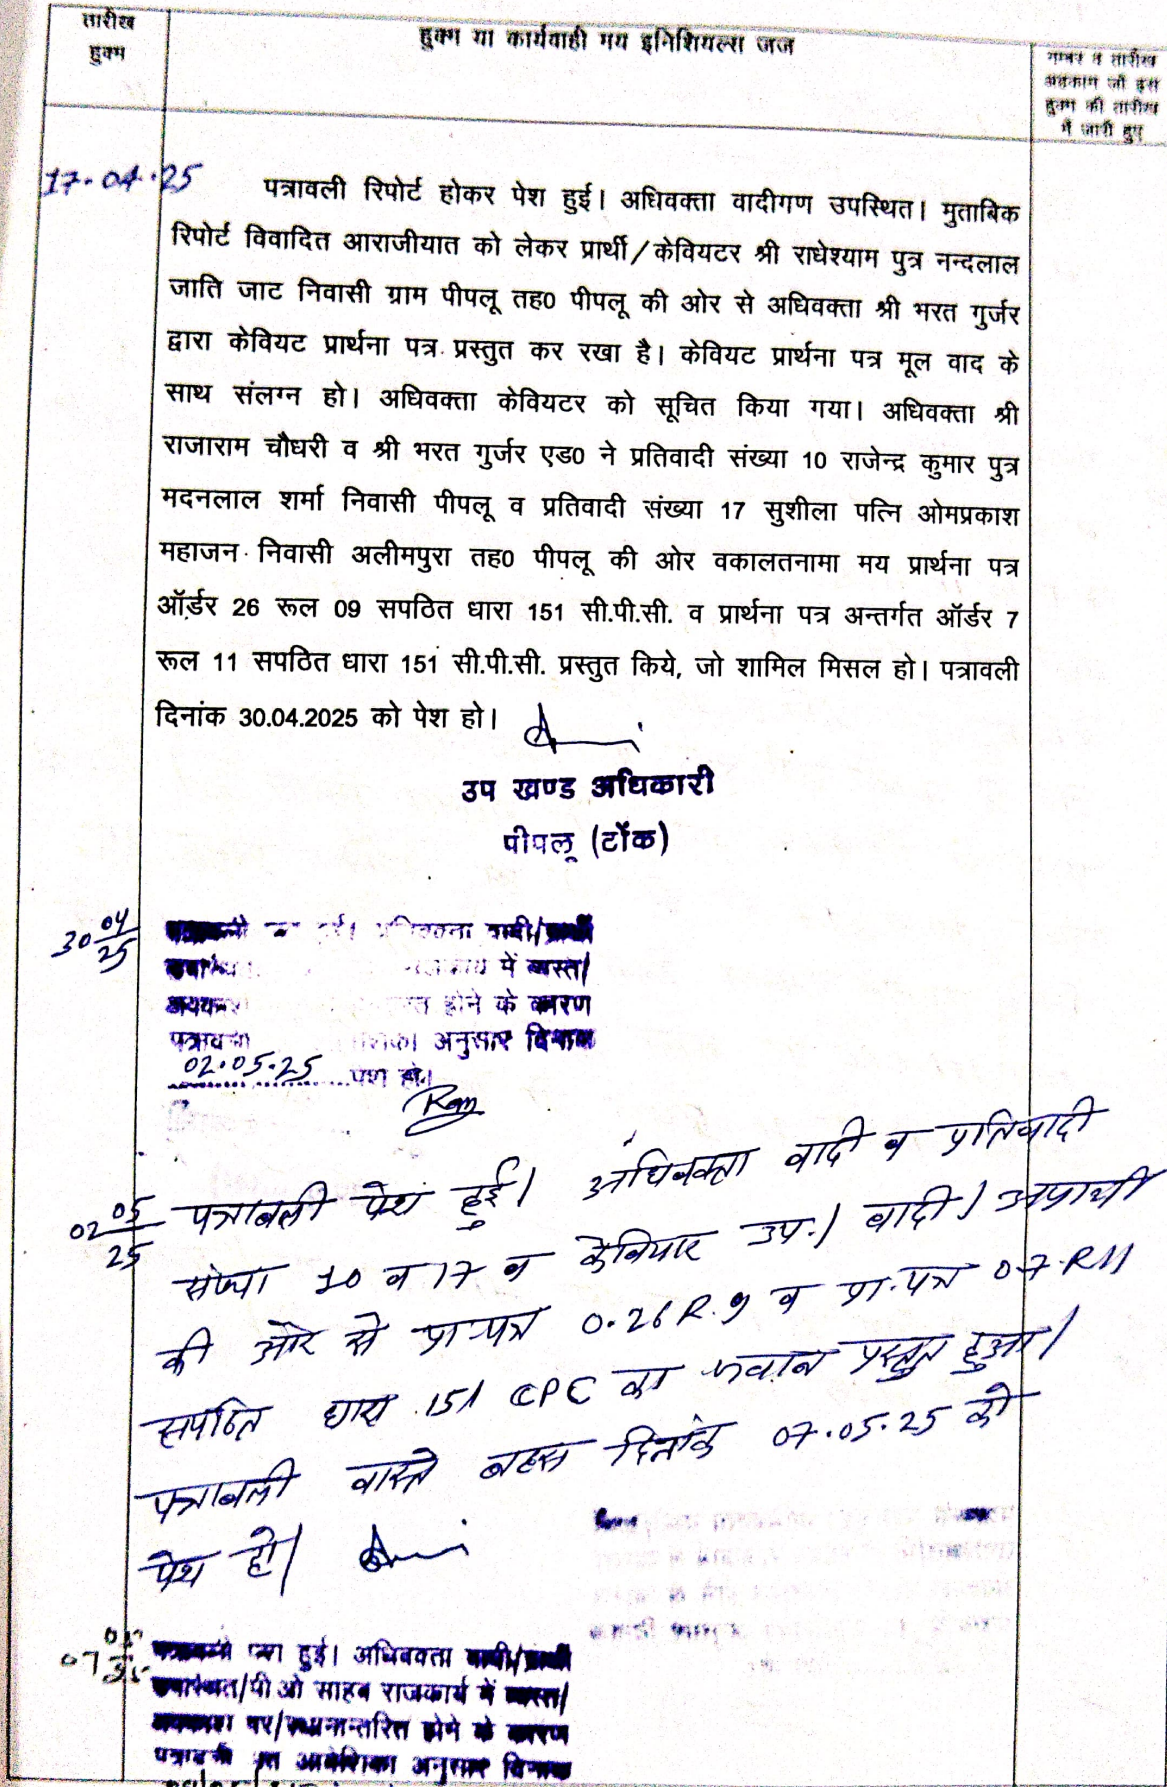 तारीख
हुक्म
हुक्म या कार्यवाही मय इनिशियल्स जज
नम्बर व तारीख
अहकाम जो इस
हुक्म की तारीख
में जारी हुए
17.04.25
पत्रावली रिपोर्ट होकर पेश हुई। अधिवक्ता वादीगण उपस्थित। मुताबिक
रिपोर्ट विवादित आराजीयात को लेकर प्रार्थी/केवियटर श्री राधेश्याम पुत्र नन्दलाल
जाति जाट निवासी ग्राम पीपलू तह0 पीपलू की ओर से अधिवक्ता श्री भरत गुर्जर
द्वारा केवियट प्रार्थना पत्र प्रस्तुत कर रखा है। केवियट प्रार्थना पत्र मूल वाद के
साथ संलग्न हो। अधिवक्ता केवियटर को सूचित किया गया। अधिवक्ता श्री
राजाराम चौधरी व श्री भरत गुर्जर एड0 ने प्रतिवादी संख्या 10 राजेन्द्र कुमार पुत्र
मदनलाल शर्मा निवासी पीपलू व प्रतिवादी संख्या 17 सुशीला पत्नि ओमप्रकाश
महाजन निवासी अलीमपुरा तह0 पीपलू की ओर वकालतनामा मय प्रार्थना पत्र
ऑर्डर 26 रूल 09 सपठित धारा 151 सी.पी.सी. व प्रार्थना पत्र अन्तर्गत ऑर्डर 7
रूल 11 सपठित धारा 151 सी.पी.सी. प्रस्तुत किये, जो शामिल मिसल हो। पत्रावली
दिनांक 30.04.2025 को पेश हो।
उप खण्ड अधिकारी
पीपलू (टोंक)
30 04/25
वादी/
में व्यस्त/
होने के कारण
अनुसार दिनांक
02.05.25 पेश हो।
02 05/25
पत्रावली पेश हुई। अधिवक्ता वादी व प्रतिवादी
संख्या 10 व 17 व केवियटर उप.। वादी/अप्रार्थी
की ओर से प्रा.पत्र O.26 R.9 व प्रा.पत्र O.7.R11
सपठित धारा 151 CPC का जवाब प्रस्तुत हुआ।
पत्रावली वास्ते बहस दिनांक 07.05.25 को
पेश हो।
07 05/25
हुई। अधिवक्ता वादी/
उपस्थित/पी ओ साहब राजकार्य में व्यस्त/
अवकाश पर/स्थानान्तरित होने के कारण
पत्रावली आदेशिका अनुसार दिनांक